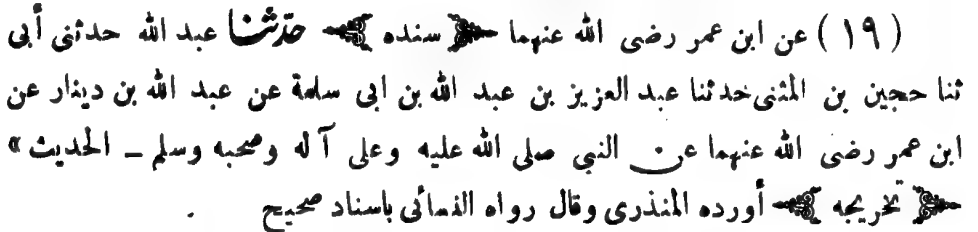 ( ١٩ ) عن ابن عمر رضى الله عنهما ﴿ سنده ﴾ حدّثنا عبد الله حدثنى أبى
ثنا حجين بن المثنى حدثنا عبد العزيز بن عبد الله بن ابى سلمة عن عبد الله بن دينار عن
ابن عمر رضى الله عنهما عن النبي صلى الله عليه وعلى آله وصحبه وسلم ـ الحديث »
﴿ تخريجه ﴾ أورده المنذرى وقال رواه النسائى باسناد صحيح .